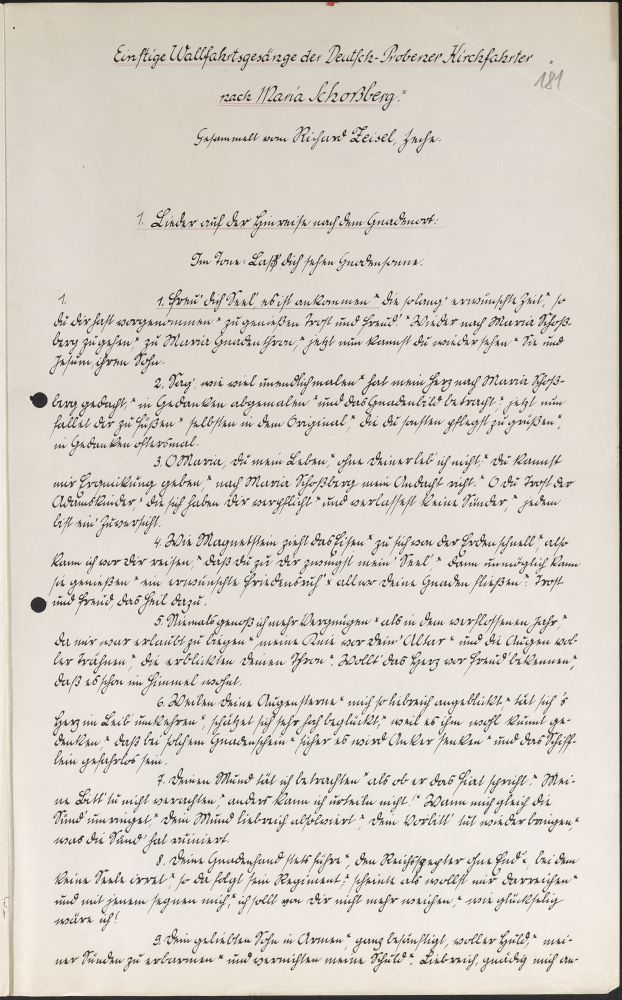 Einstige Wallfahrtsgesänge der Deutsch-Probener Kirchfahrter
181
nach Maria Schoßberg.ˣ
Gesammelt von Richard Zeisel, Zeche.
1. Lieder auf der Hinreise nach dem Gnadenort:
Im Tone: Laß dich sehen Gnadensonne.
1. 1. Freu' dich Seel', es ist ankommen " die solang' erwünschte Zeit, " so
du dir hast vorgenommen " zu genießen Trost und Freud' " Wieder nach Maria Schoß-
berg zu gehen " zu Maria Gnadenthron, " jetzt nun kannst du wieder sehen " Sie und
Jesum, ihren Sohn.
2. Sag', wie viel unendlichmalen " hat mein Herz nach Maria Schoß-
berg gedacht, " in Gedanken abgemalen " und das Gnadenbild betracht; " jetzt nun
fallet dir zu Füßen " selbsten in dem Original " die du sonsten pflegst zu grüßen ",
in Gedanken oftersmal.
3. O Maria, du mein Leben, " ohne deiner leb ich nicht; " du kannst
mir Erquickung geben, " nach Maria Schoßberg mein Andacht richt. " O du Trost der
Adamskinder, " die sich haben dir verpflicht " und verlassest keine Sünder, " jedem
bist ein' Zuversicht.
4. Wie Magnetstein zieht das Eisen " zu sich von der Erden schnell " also
kann ich vor dir reisen, " daß du zu dir zwingst mein' Seel' " dann unmöglich kann
sie genießen " ein erwünschte Friedensruh' " allwo deine Gnaden fließen " Trost
und Freud, das Heil dazu.
5. Niemals genoß ich mehr Vergnügen " als in dem verflossenen Jahr, "
da mir war erlaubt zu biegen " meine Knie vor dein' Altar " und die Augen vol-
ler Trähnen, " die erblickten deinen Thron ". Wollt' das Herz vor Freud' bekennen, "
daß es schon im Himmel wohnt.
6. Weilen deine Augensterne " mich so liebreich angeblickt, " tät sich 's
Herz im Leib' umkehren ", schätzet sich sehr hoch beglückt, " weil es ihm wohl kunnt ge-
denken, " daß bei solchem Gnadenschein " sicher es wird Anker senken " und das Schiff-
lein gefahrlos sein.
7. Deinen Mund tät ich betrachten " als ob er das Fiat spricht: " Mei-
ne Bitt' tu nicht verachten, " anders kann ich urteiln nicht! " Wann mich gleich die
Sünd' umringet, " dein Mund liebreich absolviert, " dein Vorbitt' tut wieder bringen, "
was die Sünd' hat ruiniert.
8. Deine Gnadenhand stets führe ", den Reichszepter ohne End' ", bei dem
keine Seele irret " so da folgt sein Regiment; " scheinte als wollst mir darreichen "
und mit jenem segnen mich, " ich sollt von dir nicht mehr weichen, " wie glückselig
wäre ich!
9. Dein geliebten Sohn in Armen, " ganz besänftigt, voller Huld, " mei-
ner Sünden zu erbarmen " und vernichten meine Schuld ". Liebreich, gnädig mich an-